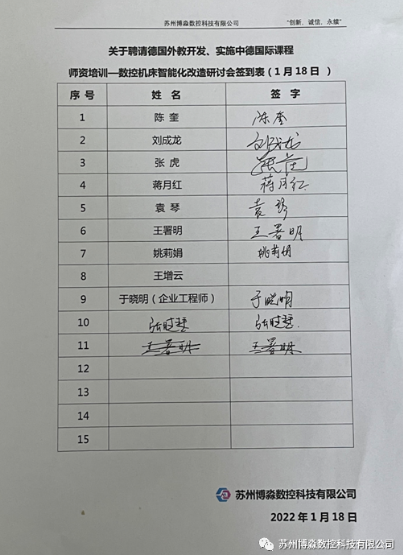 苏州博淼数控科技有限公司 "创新、诚信、永续"
关于聘请德国外教开发、实施中德国际课程
师资培训—数控机床智能化改造研讨会签到表（1月18日 ）
序 号 姓 名 签 字
1 陈 奎 陈奎
2 刘成龙 刘成龙
3 张 虎 张虎
4 蒋月红 蒋月红
5 袁 琴 袁琴
6 王署明 王署明
7 姚莉娟 姚莉娟
8 王增云
9 于晓明（企业工程师） 于晓明
10
11 王署明 王署明
12
13
14
15
苏州博淼数控科技有限公司
2022年1月18日
苏州博淼数控科技有限公司